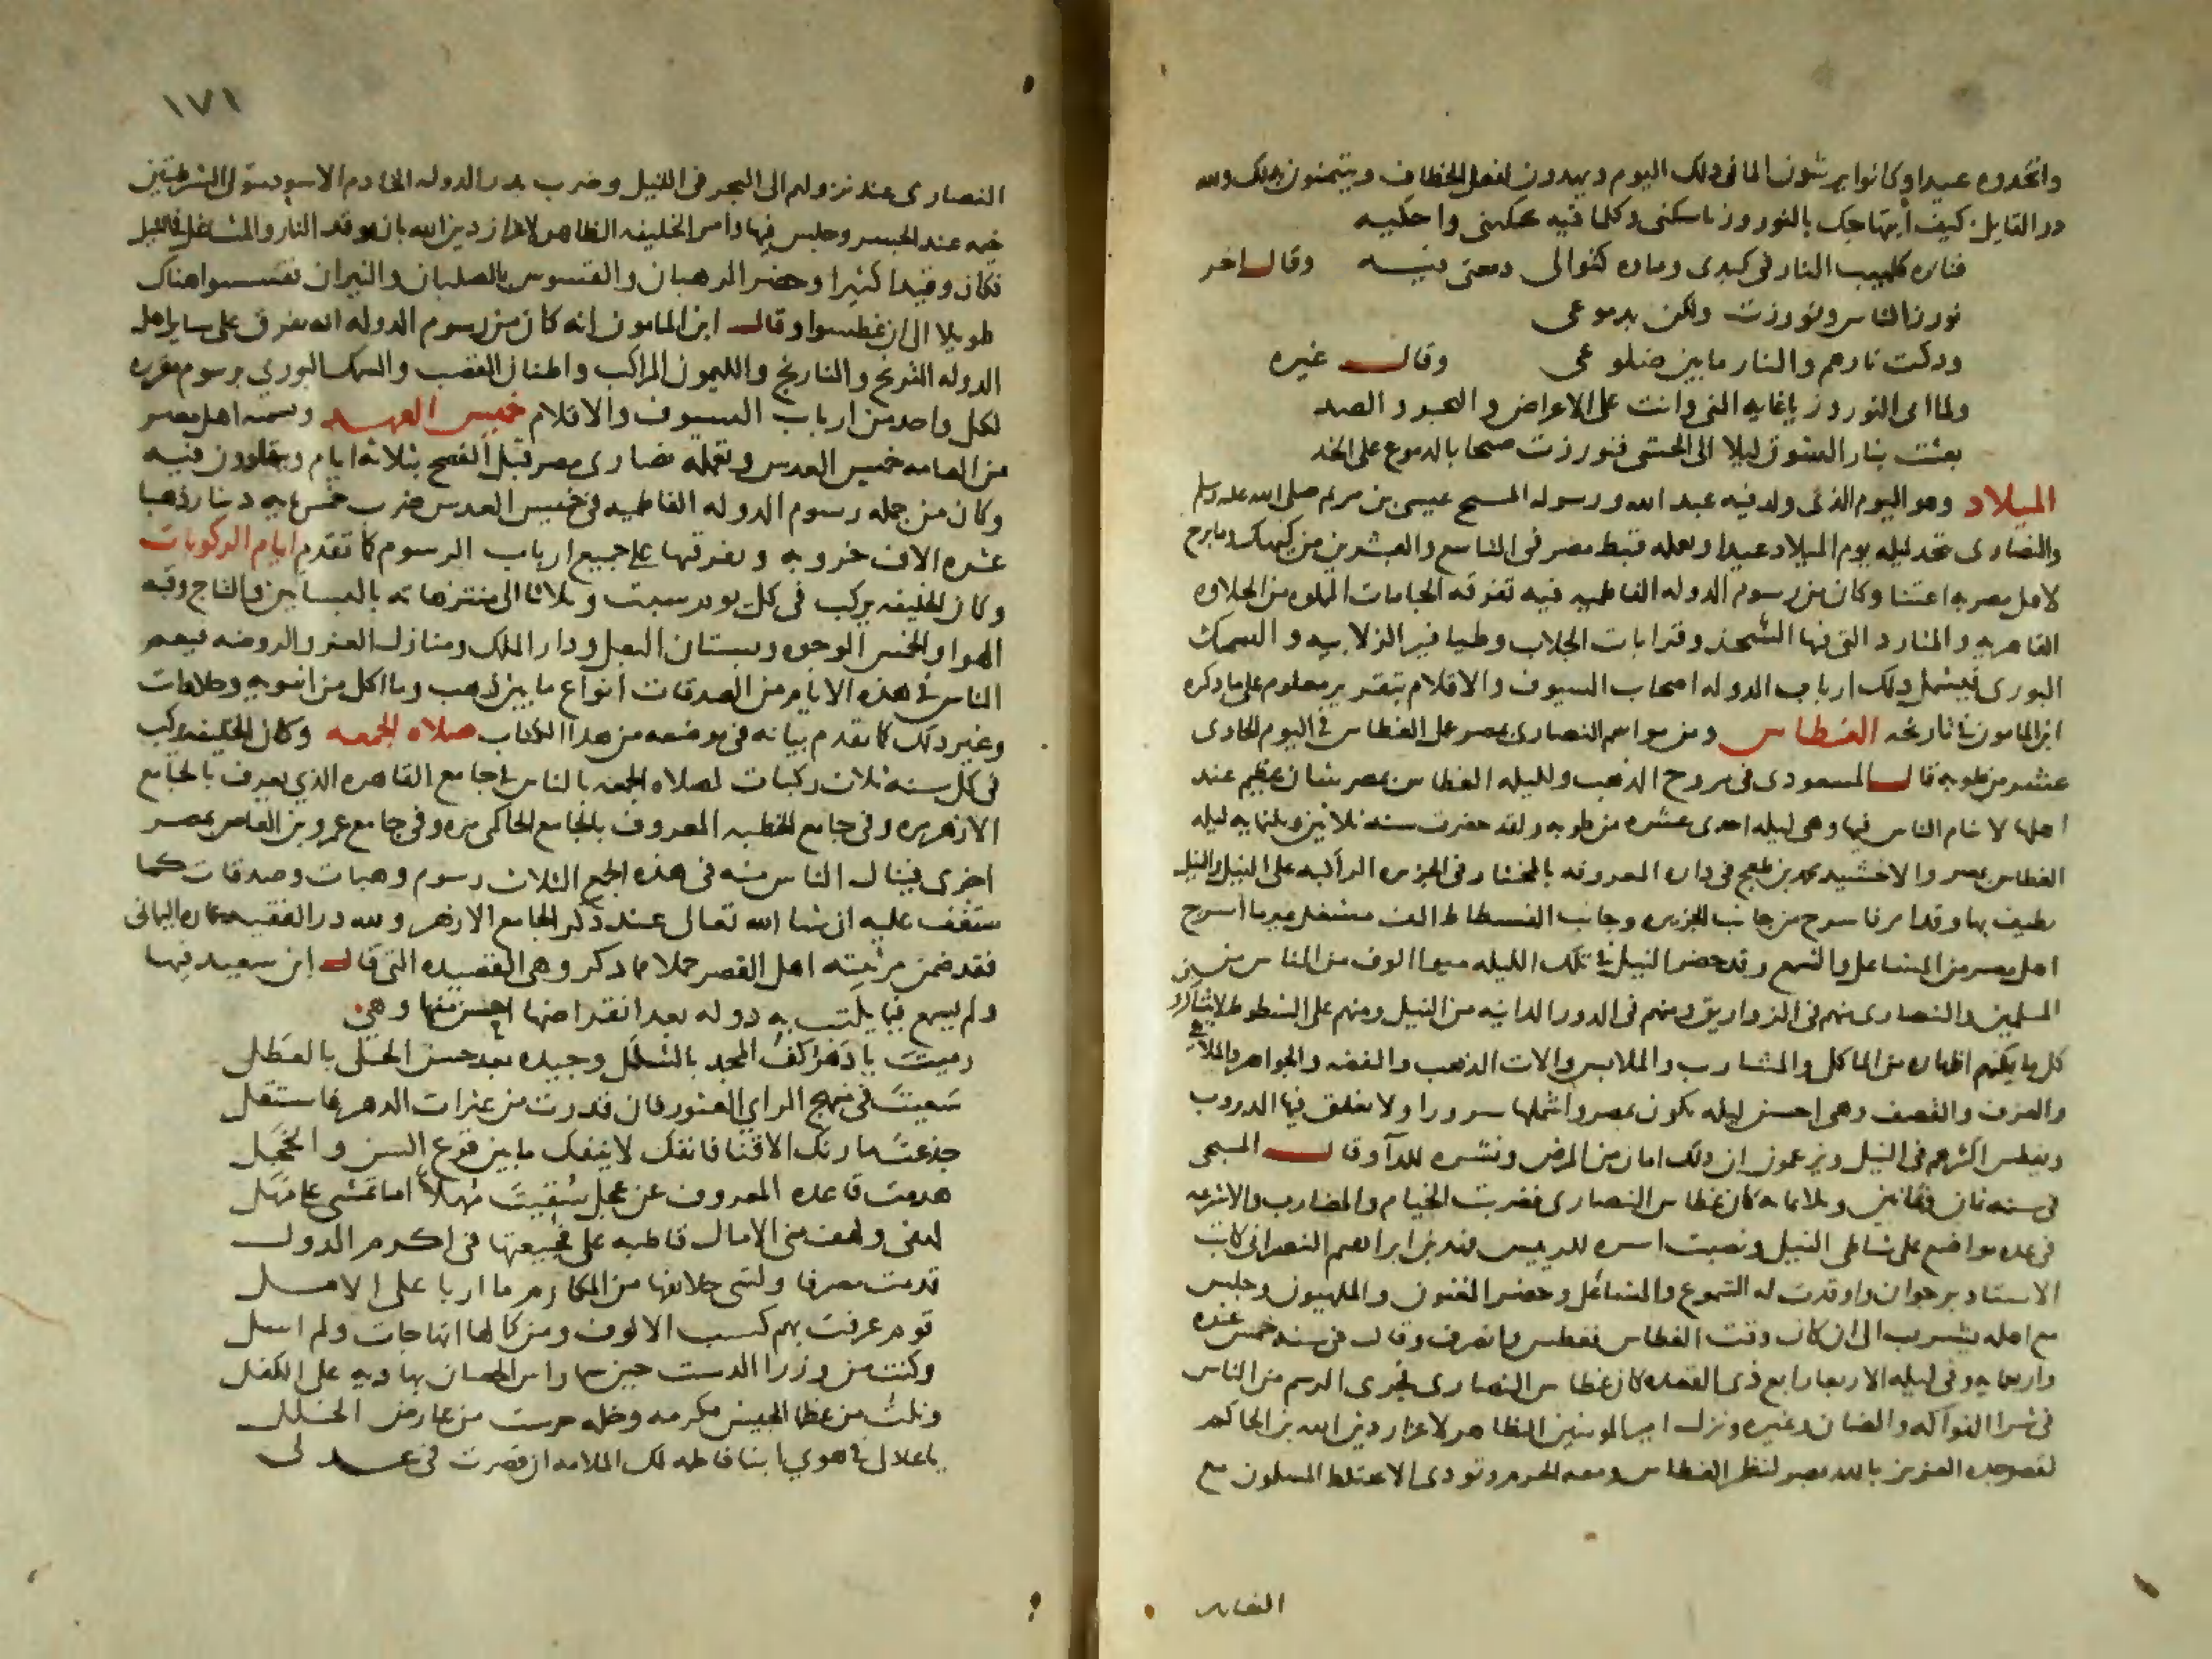 واتخدوه عيدا وكانوا يرشون الما فى دلك اليوم ويهدون لفعل الخطاف ويتيمنون بدلك ولله
در القايل كيف ابتهاجك بالنوروز ياسكنى وكلما فيه يحكينى واحكيه
فناره كلهيب النار فى كبدى وماوه كتوالى دمعتى فيه وقال اخر
نورز الناس ونورزت ولكن بدموعى
ودكت نارهم والنار مابين ضلوعى وقال غيره
ولما اتى النوروز ياغايه المنى وانت على الاعراض والهجر والصد
بعثت بنار الشوق ليلا الى الحشى فنورزت صبحا بالدموع على الخد
الميلاد وهو اليوم الذى ولد فيه عبد الله ورسوله المسيح عيسى بن مريم صلى الله عليه وسلم
والنصارى تتخد ليله يوم الميلاد عيدا وتعمله قبط مصر فى التاسع والعشرين من كيهك ومابرح
لاهل مصر به اعتنا وكان من رسوم الدوله الفاطميه فيه تفرقه الجامات المملوه من الحلاوه
القاهريه والمتارد التى فيها السمك وقرابات الجلاب وطيافير الزلابيه والسمك
البورى فيشمل دلك ارباب الدوله اصحاب السيوف والاقلام بتقرير معلوم على ما دكره
ابن المامون فى تاريخه الغطاس ومن مواسم النصارى بمصر عمل الغطاس فى اليوم الحادى
عشر من طوبه قال المسعودى فى مروج الذهب ولليله الغطاس بمصر شان عظيم عند
اهلها لا ينام الناس فيها وهى ليله احدى عشره من طوبه ولقد حضرت سنه ثلاثين وثلثمايه ليله
الغطاس بمصر والاخشيد محمد بن طغج فى داره المعروفه بالمختار فى الجزيره الراكبه على النيل والنيل
يطيف بها وقد امر فاسرج من جانب الجزيره وجانب الفسطاط الف مشعل غير ما اسرج
اهل مصر من المشاعل والشمع وقد حضر النيل فى تلك الليله ميوا الوف من الناس من
المسلمين والنصارى منهم فى الزواريق ومنهم فى الدور الدانيه من النيل ومنهم على الشطوط لايتناكرون
كل ما يمكنهم اظهاره من الماكل والمشارب والملابس والات الذهب والفضه والجواهر والملاهى
والعزف والقصف وهى احسن ليله تكون بمصر واشملها سرورا ولا تغلق فيها الدروب
ويغطس اكثرهم فى النيل ويزعمون ان دلك امان من المرض ونشره للدآ وقال المسبحى
فى سنه ثمان وثمانين وثلاثمايه كان غطاس النصارى فضربت الخيام والمضارب والاشرعه
فى عده مواضع على شاطى النيل ونصبت اسره للرييس فهد بن ابراهيم النصرانى كاتب
الاستاد برجوان واوقدت له الشموع والمشاعل وحضر المغنون والملهيون وجلس
مع اهله يشرب الى ان كان وقت الغطاس فغطس وانصرف وقال فى سنه خمس عشره
واربعمايه وفى ليله الاربعا رابع ذى القعده كان غطاس النصارى فجرى الرسم من الناس
فى شرا الفواكه والضان وغيره ونزل امير المومنين الظاهر لاعزاز دين الله بن الحاكم
لقصر جده العزيز بالله بمصر لنظر الغطاس ومعه الحرم ونودى الا يختلط المسلمون مع
النصارى
١٧١
النصارى عند نزولهم الى البحر فى الليل وضرب بدر الدوله الخادم الاسود متولى الشرطتين
خيمه عند الجسر وجلس فيها وامر الخليفه الظاهر لاعزاز دين الله بان توقد النار والمشاعل فى الليل
فكان وقيدا كثيرا وحضر الرهبان والقسوس بالصلبان والنيران فقسسوا هناك
طويلا الى ان غطسوا وقال ابن المامون انه كان من رسوم الدوله انه يفرق على ساير اهل
الدوله الترنج والنارنج والليمون المراكبى واطنان القصب والسمك البورى برسوم مقرره
لكل واحد من ارباب السيوف والاقلام خميس العهد ويسميه اهل مصر
من العامه خميس العدس وتعمله نصارى مصر قبل الفصح بثلاثه ايام ويتهادون فيه
وكان من جمله رسوم الدوله الفاطميه فى خميس العدس ضرب خمسمايه دينار ذهبا
عشره الاف خروبه وتفرقتها على جميع ارباب الرسوم كما تقدم ايام الركوبات
وكان الخليفه يركب فى كل يوم سبت وثلاثا الى منتزهاته بالبساتين والتاج وقبه
الهوا والخمس الوجوه وبستان البعل ودار الملك ومنازل العز والروضه فيعم
الناس فى هذه الايام من الصدقات انواع مابين ذهب وماكل من اشربه وحلاوات
وغير دلك كما تقدم بيانه فى موضعه من هدا الكتاب صلاه الجمعه وكان الخليفه يركب
فى كل سنه ثلاث ركبات لصلاه الجمعه بالناس فى جامع القاهره الذى يعرف بالجامع
الازهر مره وفى جامع الخطبه المعروف بالجامع الحاكمى مره وفى جامع عمرو بن العاص بمصر
اخرى فينال الناس منه فى هذه الجمع الثلاث رسوم وهبات وصدقات كما
ستقف عليه ان شا الله تعالى عند ذكر الجامع الازهر ولله در الفقيه عماره اليمانى
فقد ضمن مرثيته اهل القصر جملا مما دكر وهى القصيده التى قال ابن سعيد فيها
ولم يسمع فيما يكتب به دوله بعد انقراضها احسن منها وهى
رميت يا دهر كف المجد بالشلل وجيده بعد حسن الحلى بالعطل
سعيت فى منهج الراى العثور فان قدرت من عثرات الدهر فاستقل
جذعت مارنك الاقنا فانفك لا ينفك مابين قرع السن والخجل
هدمت قاعده المعروف عن عجل سقيت مهلا اما تمشى على مهل
لهفى ولهف بنى الامال قاطبه على فجيعتها فى اكرم الدول
قدمت مصر فاولتنى خلائفها من المكارم ما اربا على الامل
قوم عرفت بهم كسب الالوف ومن كمالها انها جات ولم اسل
وكنت من وزرا الدست حين سما راس الحصان بهاديه على الكفل
ونلت من عظما الجيش مكرمه وخله حرست من عارض الخلل
ياعاذلى فى هوى ابنا فاطمه لك الملامه ان قصرت فى عدلى